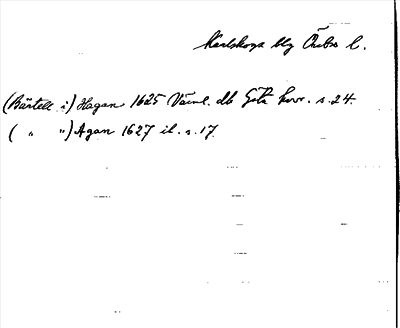 Karlskoga blg Örebro l.
(Bärtell i) Hagan 1625 Värml. db Göta hovr. s. 24.
( " ") Agan 1627 il. s. 17.